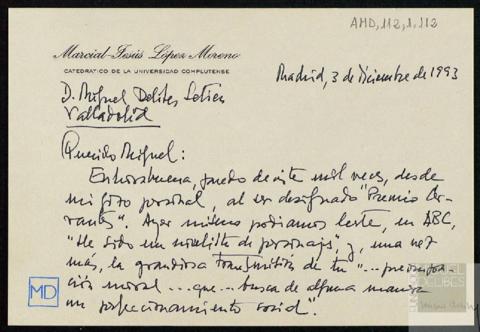 AMD,112,1,112
Marcial-Jesús López Moreno
CATEDRATICO DE LA UNIVERSIDAD COMPLUTENSE
Madrid, 3 de Diciembre de 1993
D. Miguel Delibes Setien
Valladolid
Querido Miguel:
Enhorabuena, puedo decirte mil veces, desde
mi gozo personal, al ser designado "Premio Cer-
vantes". Ayer mismo podíamos leerte, en ABC,
"He sido un novelista de personajes" y, una vez
más, la grandiosa transmisión de tu "...preocupa-
ción moral...que...busca de alguna manera
un perfeccionamiento social".
MD